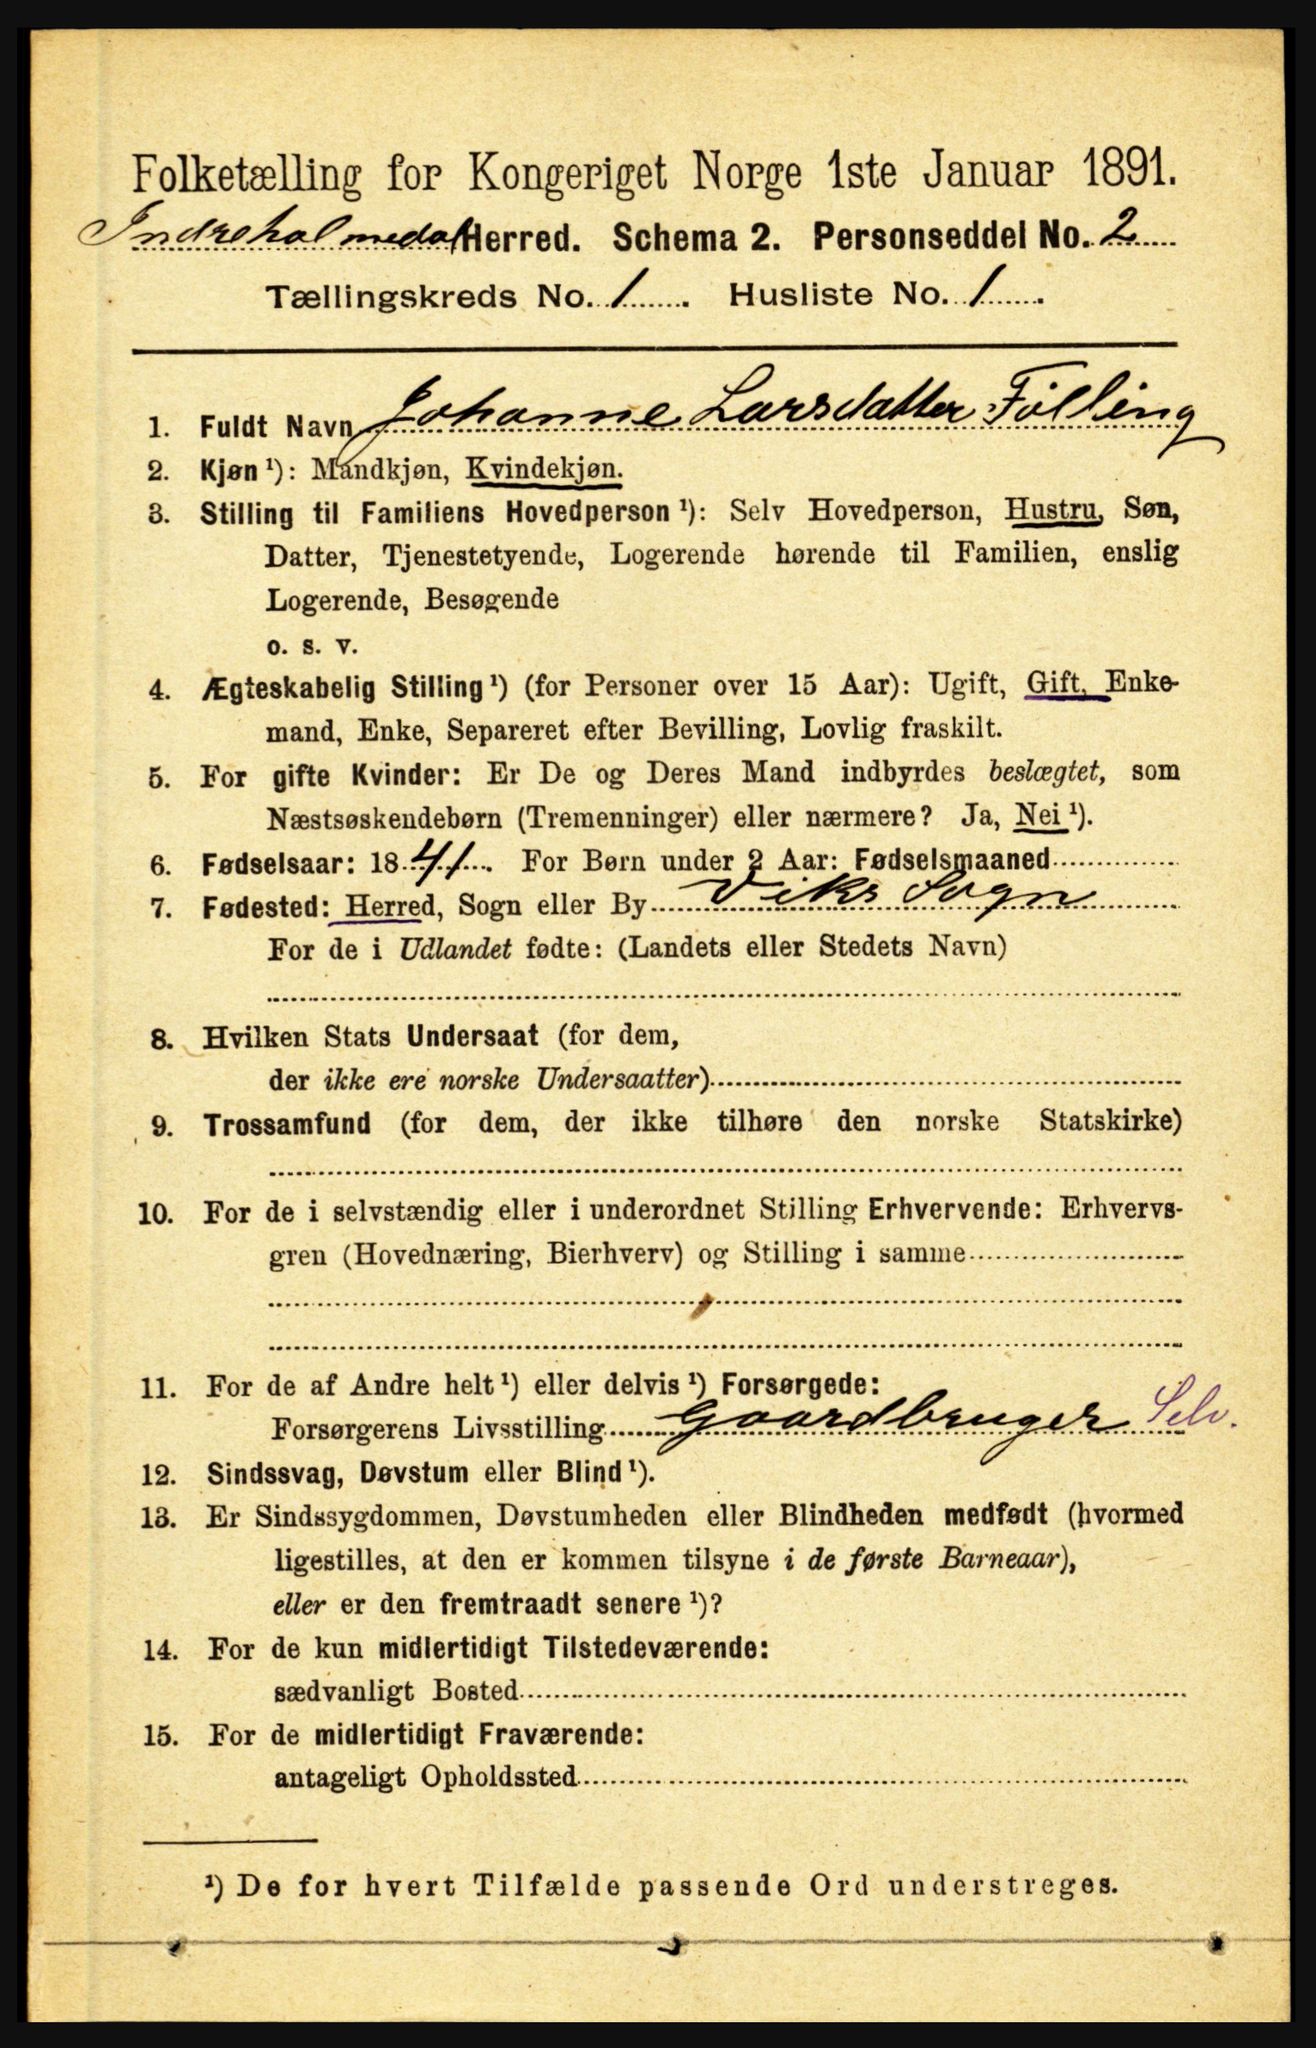 Folketælling for Kongeriget Norge 1ste Januar 1891.
Indreholmedal Herred. Schema 2. Personseddel No. 2
Tællingskreds No. 1. Husliste No. 1.
1. Fuldt Navn Johanne Larsdatter Följing
2. Kjøn ¹): Mandkjøn, Kvindekjøn.
3. Stilling til Familiens Hovedperson ¹): Selv Hovedperson, Hustru, Søn,
Datter, Tjenestetyende, Logerende hørende til Familien, enslig
Logerende, Besøgende
o. s. v.
4. Ægteskabelig Stilling ¹) (for Personer over 15 Aar): Ugift, Gift, Enke-
mand, Enke, Separeret efter Bevilling, Lovlig fraskilt.
5. For gifte Kvinder: Er De og Deres Mand indbyrdes beslægtet, som
Næstsøskendebørn (Tremenninger) eller nærmere? Ja, Nei ¹).
6. Fødselsaar: 1841. For Børn under 2 Aar: Fødselsmaaned
7. Fødested: Herred, Sogn eller By Viks Sogn
For de i Udlandet fødte: (Landets eller Stedets Navn)
8. Hvilken Stats Undersaat (for dem,
der ikke ere norske Undersaatter)
9. Trossamfund (for dem, der ikke tilhøre den norske Statskirke)
10. For de i selvstændig eller i underordnet Stilling Erhvervende: Erhvervs-
gren (Hovednæring, Bierhverv) og Stilling i samme
11. For de af Andre helt ¹) eller delvis ¹) Forsørgede:
Forsørgerens Livsstilling Gaardbruger Selv.
12. Sindssvag, Døvstum eller Blind ¹).
13. Er Sindssygdommen, Døvstumheden eller Blindheden medfødt (hvormed
ligestilles, at den er kommen tilsyne i de første Barneaar),
eller er den fremtraadt senere ¹)?
14. For de kun midlertidigt Tilstedeværende:
sædvanligt Bosted
15. For de midlertidigt Fraværende:
antageligt Opholdssted
¹) De for hvert Tilfælde passende Ord understreges.